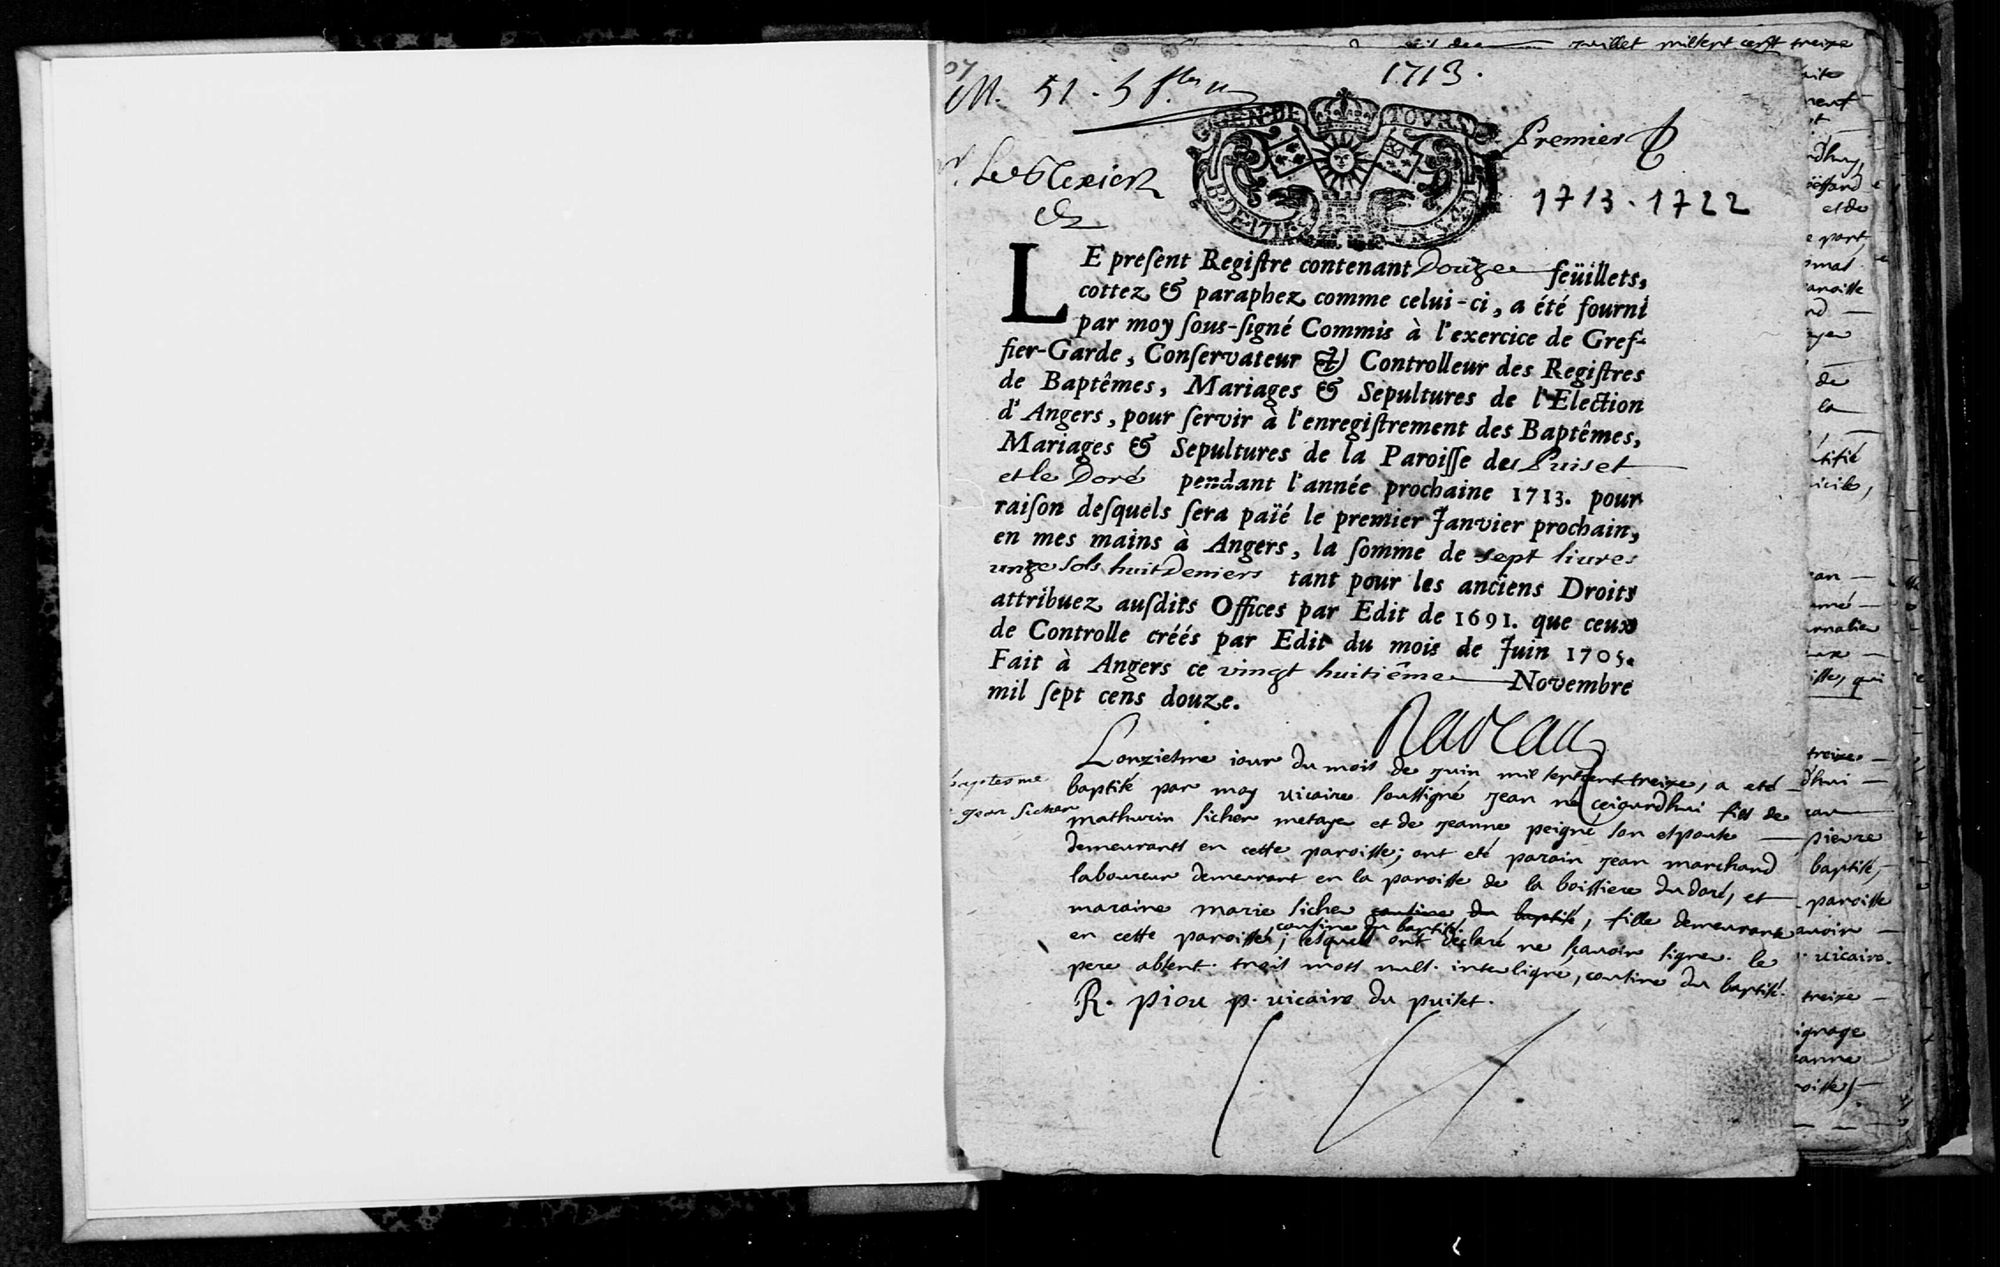 juillet mil sept cent treize
1713.
M. 51. 5
GEN. DE TOVRS
Premier
1713. 1722
LE present Registre contenant Douze feüillets,
cottez & paraphez comme celui-ci, a été fourni
par moy sous-signé Commis à l'exercice de Gref-
fier-Garde, Conservateur & Controlleur des Registres
de Baptêmes, Mariages & Sepultures de l'Election
d'Angers, pour servir à l'enregistrement des Baptêmes,
Mariages & Sepultures de la Paroisse de Puiset
et le Doré pendant l'année prochaine 1713. pour
raison desquels sera païé le premier Janvier prochain,
en mes mains à Angers, la somme de sept livres
unze sols huit Deniers tant pour les anciens Droits
attribuez ausdits Offices par Edit de 1691. que ceux
de Controlle créés par Edit du mois de Juin 1705.
Fait à Angers ce vingt huitiême Novembre
mil sept cens douze.
Naveau
baptesme
jean sicher
Lonziesme iour du mois de juin mil sept cent treize, a eté
baptisé par moy vicaire soussigné jean né ceiourdhui fils de
mathurin sicher metayer et de jeanne peigné son espouse
demeurants en cette paroisse; ont eté parain jean marchand
laboureur demeurant en la paroisse de la boissiere du doré, et
maraine marie sicher cousine du baptisé, fille demeurante
, cousine du baptisé
en cette paroisse; lesquels ont declaré ne sçavoir signer. le
pere absent. trois mots nuls. interligné, cousine du baptisé.
R. piou p. vicaire du puiset.